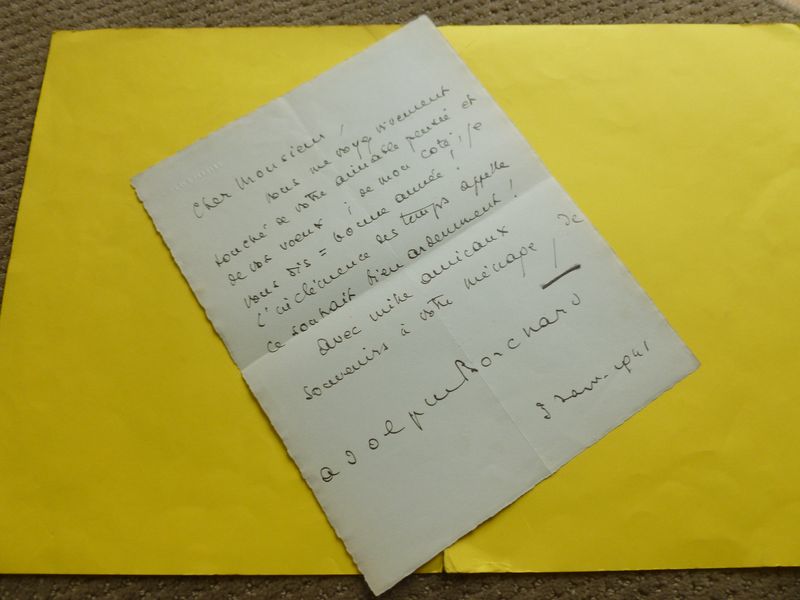 Cher Monsieur,
Vous me voyez vivement
touché de votre aimable pensée et
de vos voeux ; de mon coté, je
vous dis = bonne année !
l'inclémence des temps appelle
ce souhait bien ardemment !
avec mille amicaux
souvenirs à votre ménage, de
adolphe Borchard
3 Janv. 1941